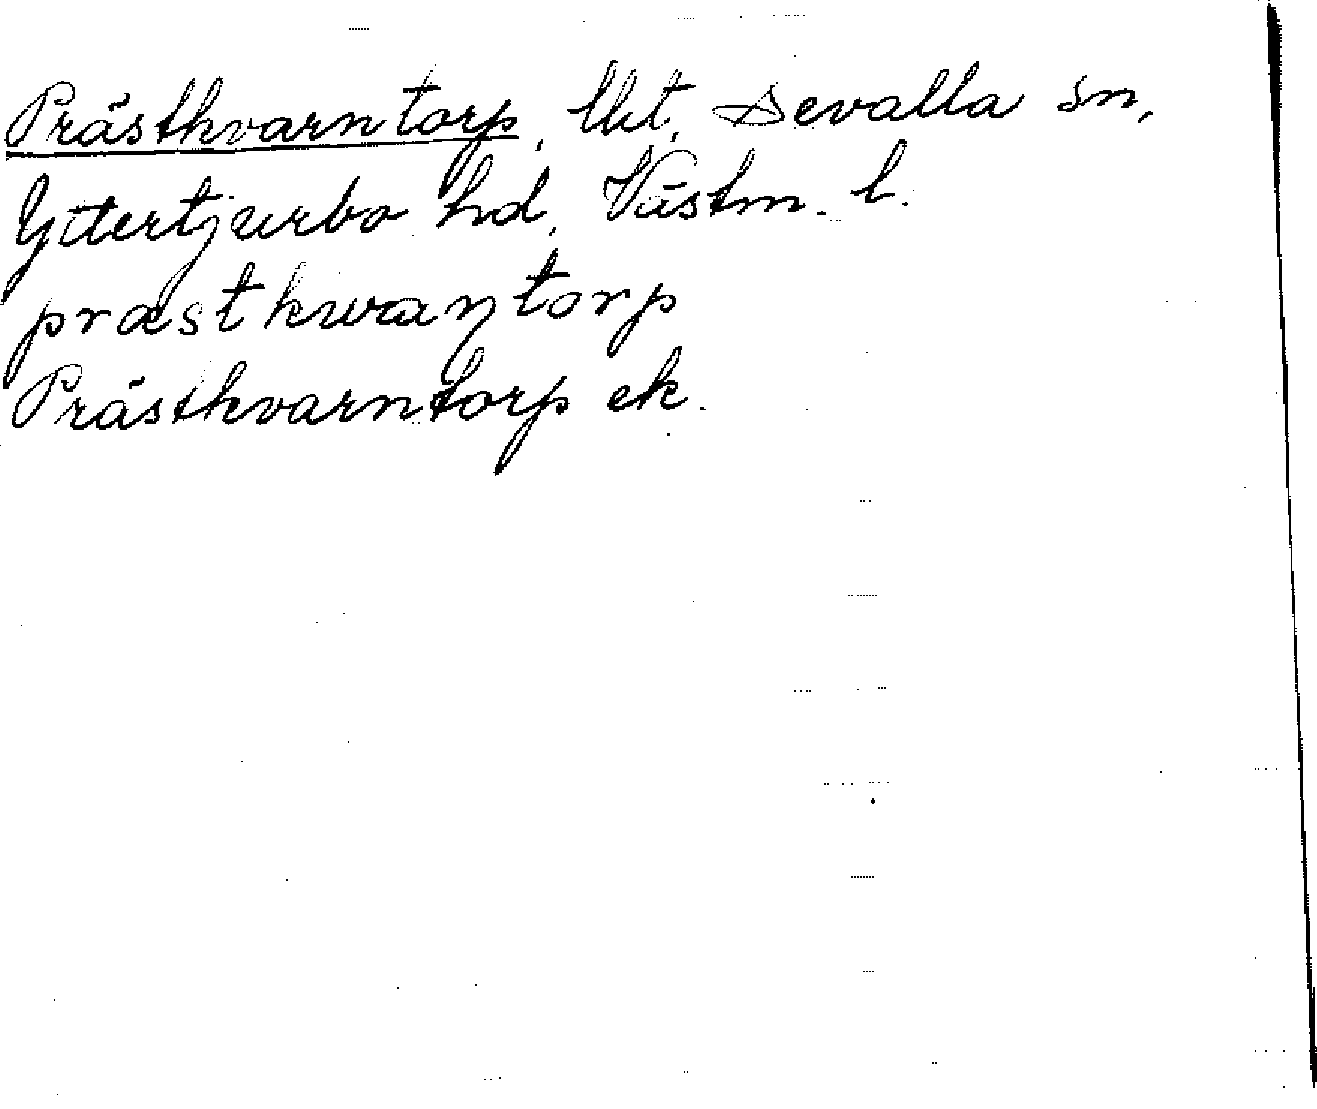 Prästkvarntorp, lkt, Sevalla sn,
Yttertjurbo hd, Västm. l.
præstkwaɳtorp
Prästkvarntorp ek.